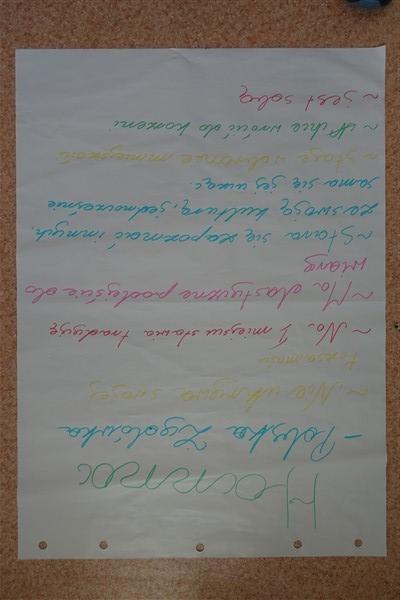 Hanna
- Polska Żydówka
~ Nie ukrywa swojej
tożsamości
~ Na I miejscu stawia tradycję
~ Ma elastyczne podejście do
wiary
~ Stara się zapoznać innych
za swoją kulturą, jednocześnie
sama się jej ucząc
~ Staje w obronie mniejszości
~ chce wrócić do korzeni
~ jest sobą